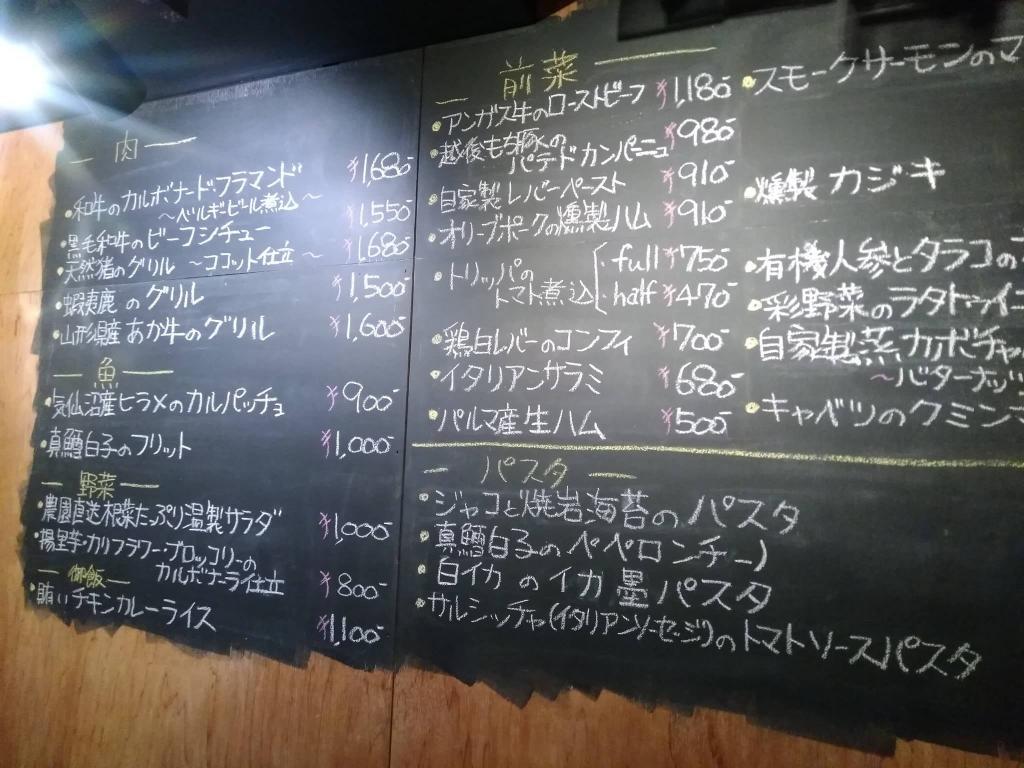 肉
・和牛のカルボナード・フラマンド ¥1,680-
～ベルギービール煮込～
・黒毛和牛のビーフシチュー ¥1,550-
・天然猪のグリル ～ココット仕立～ ¥1,680-
・蝦夷鹿のグリル ¥1,500-
・山形県産あか牛のグリル ¥1,600-
魚
・気仙沼産ヒラメのカルパッチョ ¥900-
・真鱈白子のフリット ¥1,000-
野菜
・農園直送根菜たっぷり温製サラダ ¥1,000-
・揚里芋・カリフラワー・ブロッコリーの
カルボナーラ仕立 ¥800-
御飯
・賄いチキンカレーライス ¥1,100-
前菜
・アンガス牛のローストビーフ ¥1,180-
・越後もち豚の
パテドカンパーニュ ¥980-
・自家製レバーペースト ¥910-
・オリーブポークの燻製ハム ¥910-
・トリッパの full ¥750-
トマト煮込 half ¥470-
・鶏白レバーのコンフィ ¥700-
・イタリアンサラミ ¥680-
・パルマ産生ハム ¥500-
パスタ
・ジャコと焼岩海苔のパスタ
・真鱈白子のペペロンチーノ
・白イカのイカ墨パスタ
・サルシッチャ(イタリアンソーセージ)のトマトソースパスタ
・スモークサーモンのマ
・燻製カジキ
・有機人参とタラコの
・彩野菜のラタトゥイユ
・自家製蒸カボチャ
～バターナッツ
・キャベツのクミンマ